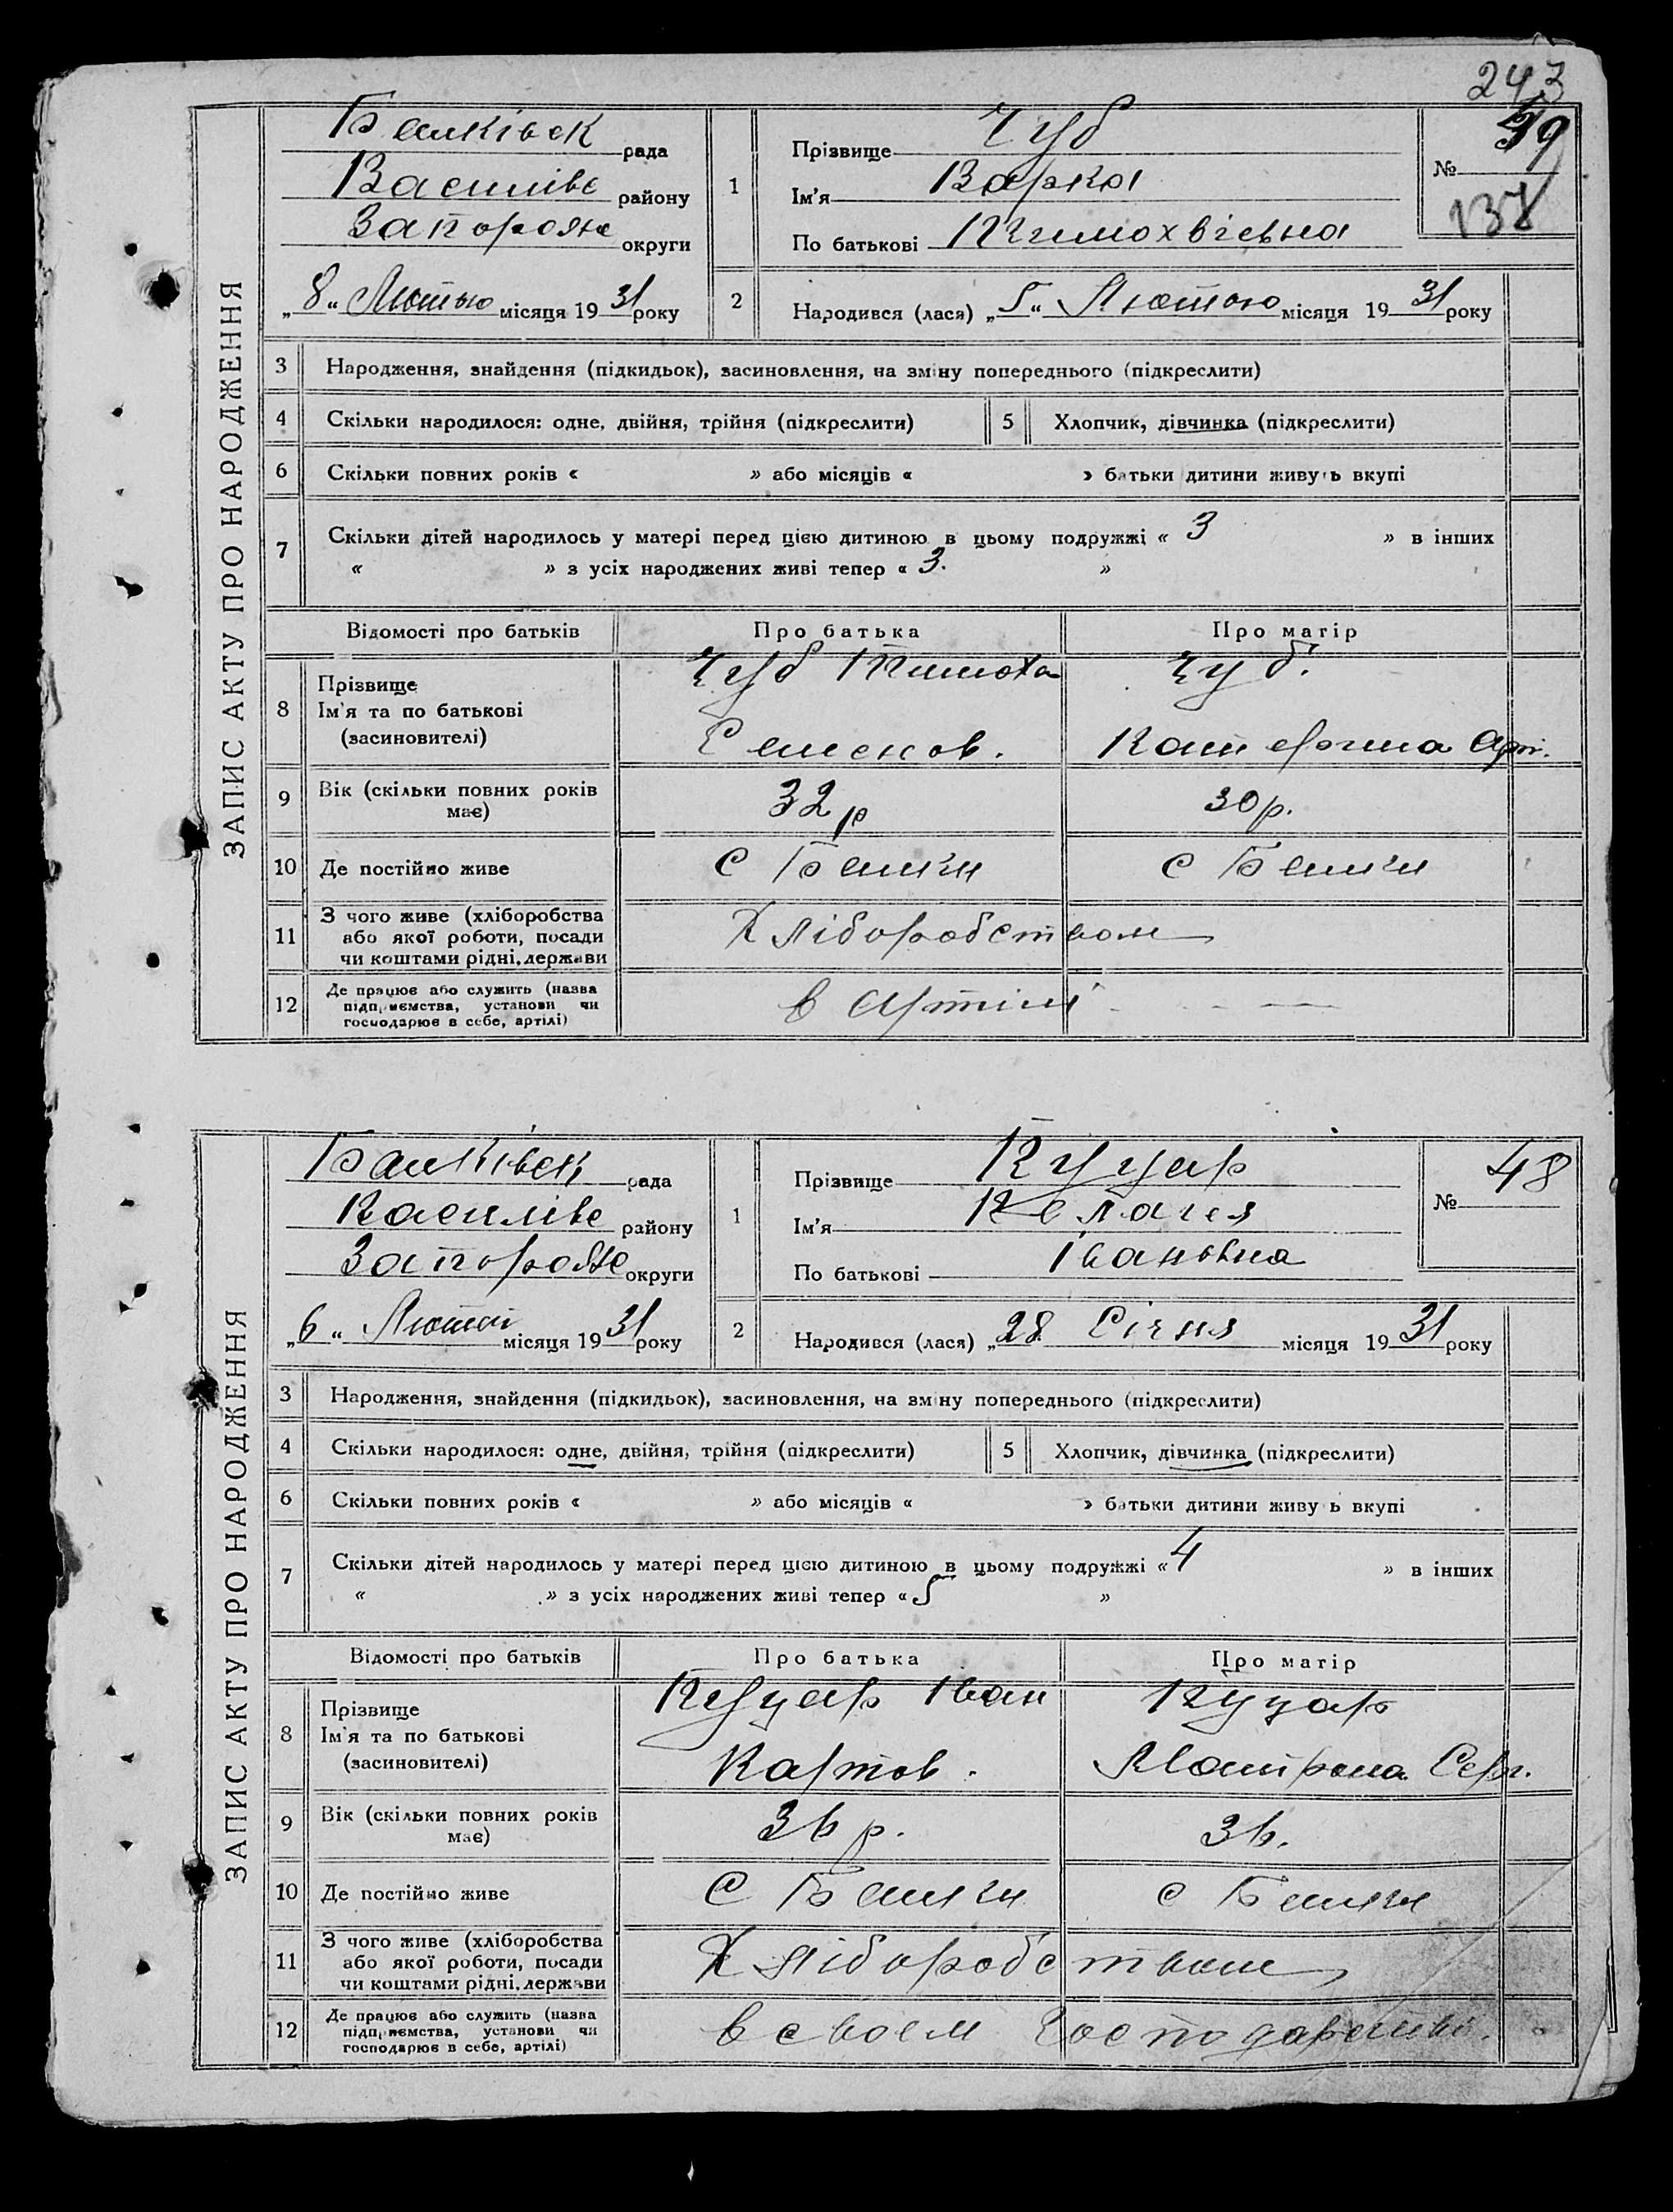 243
ЗАПИС АКТУ ПРО НАРОДЖЕННЯ
Балківськ рада
Василівс району
Запорожс округи
„8“ Лютого місяця 1931 року
1
Прізвище Чуб
Ім'я Варка
По батькові Тимохвієвна
№ 49
137
2
Народився (лася) „5“ Лютого місяця 1931 року
3 Народження, знайдення (підкидьок), засиновлення, на зміну попереднього (підкреслити)
4 Скільки народилося: одне, двійня, трійня (підкреслити) 5 Хлопчик, дівчинка (підкреслити)
6 Скільки повних років « » або місяців « » батьки дитини живуть вкупі
7 Скільки дітей народилось у матері перед цією дитиною в цьому подружжі « 3 » в інших
« » з усіх народжених живі тепер « 3. »
Відомості про батьків Про батька Про матір
8 Прізвище Ім'я та по батькові (засиновителі)
Чуб Тимоха Чуб.
Семенов. Катерина Арт.
9 Вік (скільки повних років має) 32 р 30 р.
10 Де постійно живе с Балки с Балки
11 З чого живе (хліборобства або якої роботи, посади чи коштами рідні, держави Хліборобством
12 Де працює або служить (назва підприємства, установи чи господарює в себе, артілі) в Артілі
ЗАПИС АКТУ ПРО НАРОДЖЕННЯ
Балківськ рада
Василівс району
Запорожс округи
„6“ місяця 1931 року
1
Прізвище Куцар
Ім'я Пелагея
По батькові Івановна
№ 48
2
Народився (лася) „28 Січня місяця 1931 року
3 Народження, знайдення (підкидьок), засиновлення, на зміну попереднього (підкреслити)
4 Скільки народилося: одне, двійня, трійня (підкреслити) 5 Хлопчик, дівчинка (підкреслити)
6 Скільки повних років « » або місяців « » батьки дитини живуть вкупі
7 Скільки дітей народилось у матері перед цією дитиною в цьому подружжі « 4 » в інших
« » з усіх народжених живі тепер « 5 »
Відомості про батьків Про батька Про матір
8 Прізвище Ім'я та по батькові (засиновителі)
Куцар Іван Куцар
Картов. Мотрона Серг.
9 Вік (скільки повних років має) 36 р. 36.
10 Де постійно живе с Балки с Балки
11 З чого живе (хліборобства або якої роботи, посади чи коштами рідні, держави Хліборобством
12 Де працює або служить (назва підприємства, установи чи господарює в себе, артілі) в своем